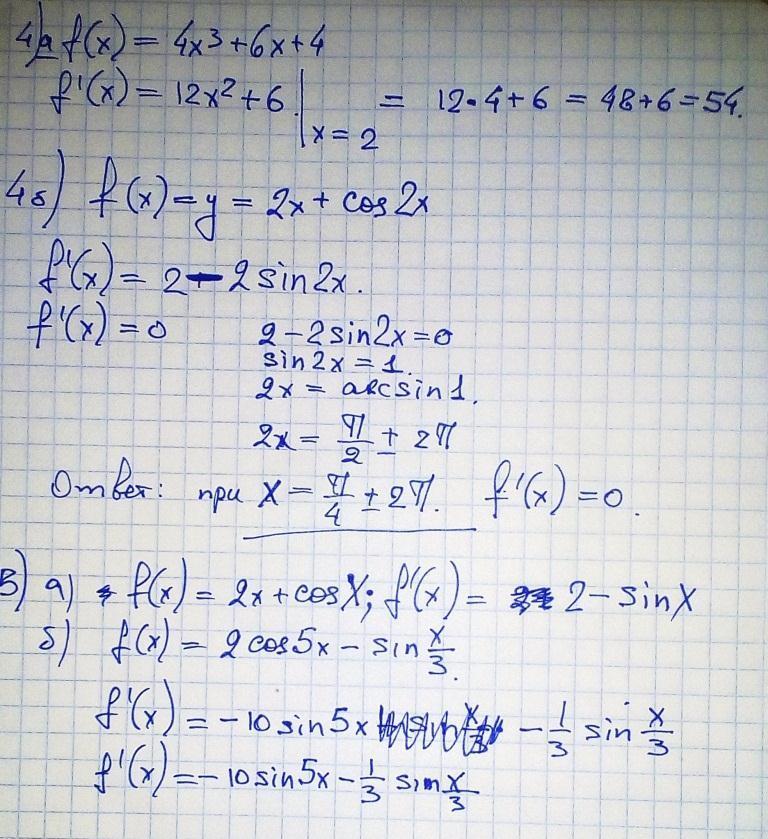 4)а f(x) = 4x³+6x+4
f'(x) = 12x²+6 |x=2 = 12·4+6 = 48+6=54.
4б) f(x)=y = 2x+cos2x
f'(x) = 2-2sin2x.
f'(x)=0 2-2sin2x=0
sin2x=1.
2x = arcsin1.
2x = π/2 ± 2π
Ответ: при x = π/4 ± 2π. f'(x)=0.
3) а) f(x) = 2x+cosx; f'(x) = 2-sinx
б) f(x) = 2cos5x - sin x/3.
f'(x) = -10sin5x - 1/3 sin x/3
f'(x) = -10sin5x - 1/3 sin x/3